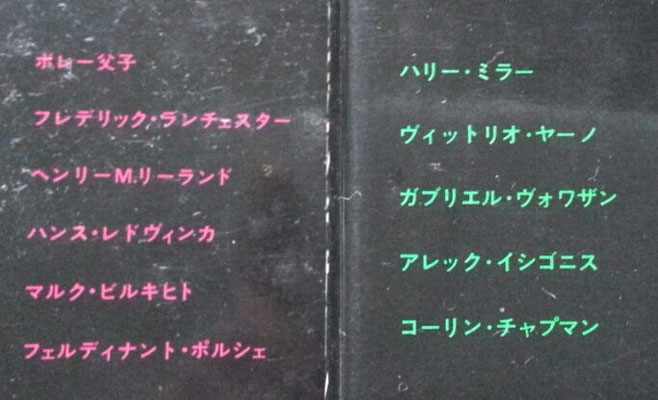 ボレー父子
フレデリック・ランチェスター
ヘンリーM.リーランド
ハンス・レドヴィンカ
マルク・ビルキヒト
フェルディナント・ポルシェ
ハリー・ミラー
ヴィットリオ・ヤーノ
ガブリエル・ヴォワザン
アレック・イシゴニス
コーリン・チャプマン